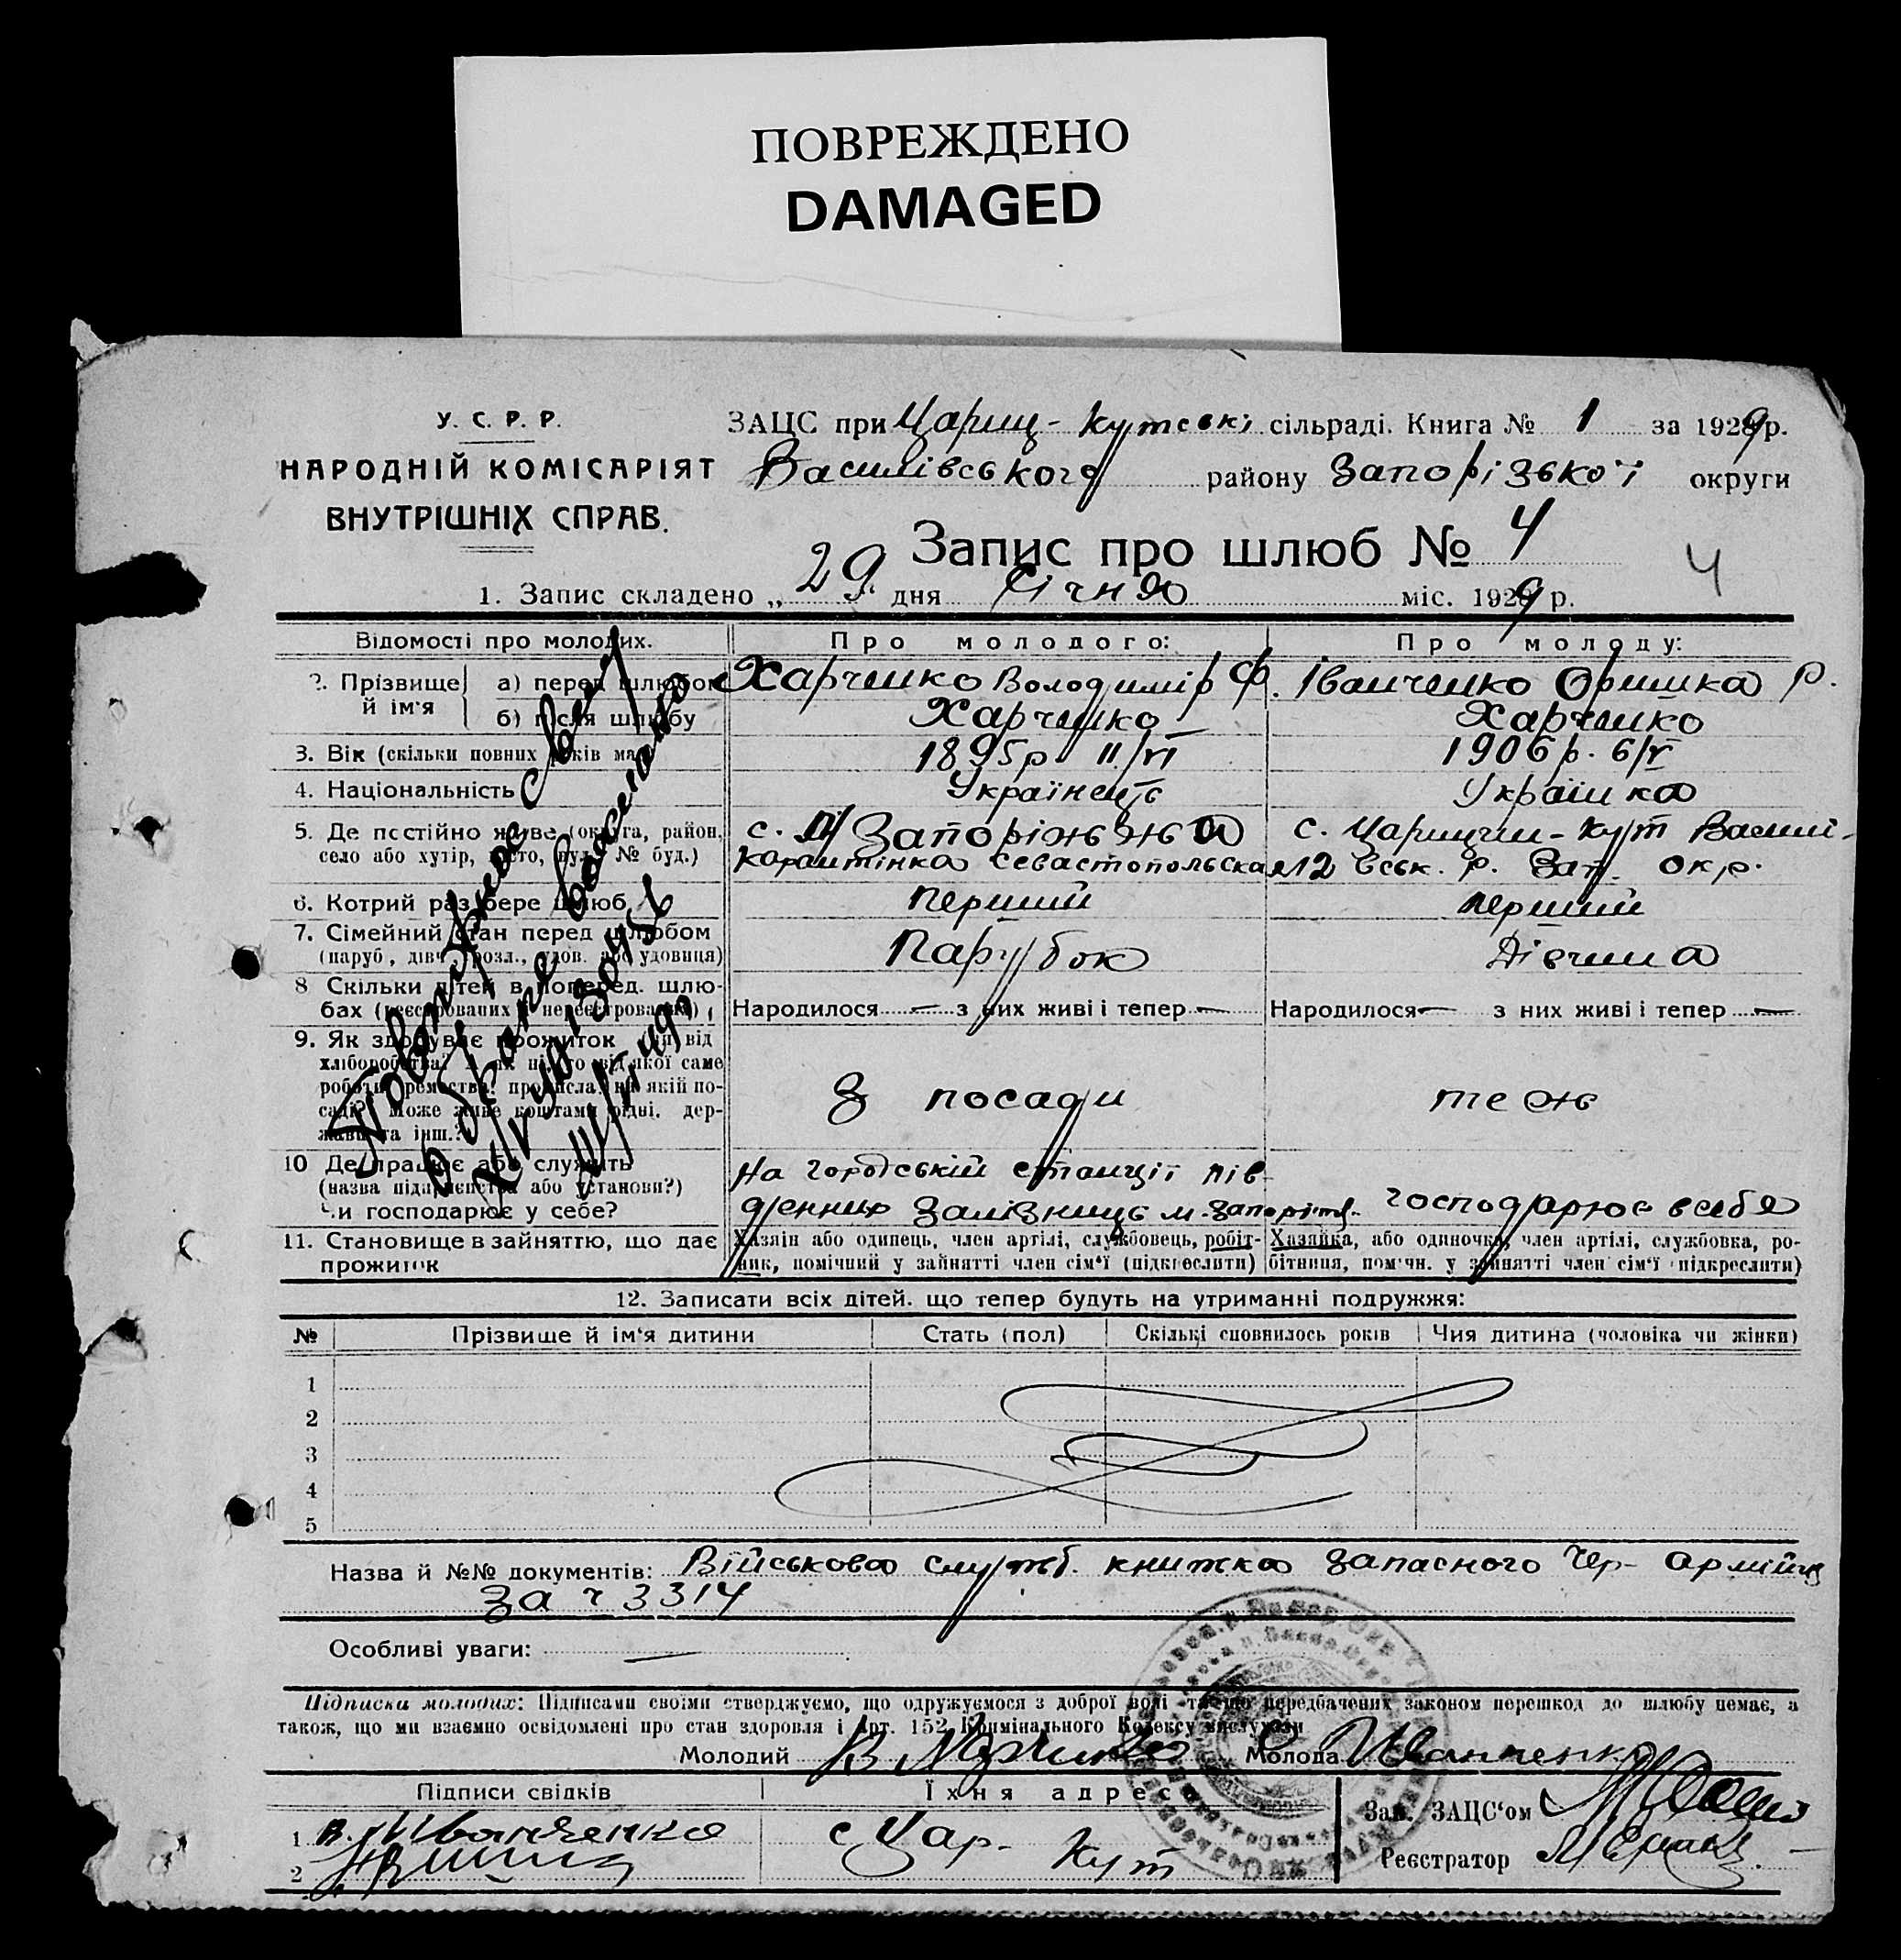 ПОВРЕЖДЕНО
DAMAGED
У. С. Р. Р.
НАРОДНІЙ КОМІСАРІЯТ
ВНУТРІШНІХ СПРАВ.
ЗАЦС при Цариц-Кутські сільраді. Книга № 1 за 1929 р.
Василівського району Запорізької округи
Запис про шлюб № 4
4
1. Запис складено „29" дня Січня міс. 1929 р.
Відомості про молодих. Про молодого: Про молоду:
2. Прізвище й ім'я а) перед шлюбом Харченко Володимір Ф. Іванченко Оришка Р.
б) після шлюбу Харченко Харченко
3. Вік (скільки повних років має) 1895р 11/VI 1906 р. 6/V
4. Національність Українець Українка
5. Де постійно живе (округа, район, с. Запоріжжя с. Царицин-Кут Васили-
село або хутір, місто, вул. № буд.) Карантінка Севастопольская 12 вськ. р. Зап. окр.
6. Котрий раз бере шлюб перший перший
7. Сімейний стан перед шлюбом Парубок Дівчина
(паруб., дівч., розл., удов. або удовиця)
8 Скільки дітей в поперед. шлю-
бах (реєстрованих й нереєстрованих) Народилося — з них живі і тепер — Народилося — з них живі і тепер —
9. Як здобуває прожиток (чи від
хліборобства? А як ні, то від якої саме
роботи, ремества, промисла, на якій по- З посади теж
саді? Може живе коштами рідні, дер-
жави та інш.?)
10 Де працює або служить На городській станції Пів-
(назва підприємства або установи?) денних Залізниць м. Запоріжя. господарює в себе
Чи господарює у себе?
11. Становище в зайняттю, що дає Хазяїн або одинець, член артілі, службовець, робіт- Хазяйка, або одиночка, член артілі, службовка, ро-
прожиток ник, помічний у зайнятті член сім'ї (підкреслити) бітниця, пом'чн. у зайнятті член сім'ї (підкреслити)
12. Записати всіх дітей. що тепер будуть на утриманні подружжя:
№ Прізвище й ім'я дитини Стать (пол) Скількі сповнилось років Чия дитина (чоловіка чи жінки)
1
2
3
4
5
Назва й №№ документів: Військова служб. книжка запасного Чер-армійця
за ч 3314
Особливі уваги: —
Підписи молодих: Підписами своїми стверджуємо, що одружуємося з доброї волі та що передбачених законом перешкод до шлюбу немає, а
також, що ми взаємно освідомлені про стан здоровля і арт. 152 Кримінального Кодексу вислухали
Молодий В Харченко Молода Иванченко
Підписи свідків Їхня адреса
Зав. ЗАЦС'ом
1. В. Иванченко с Цар-Кут
Реєстратор
2